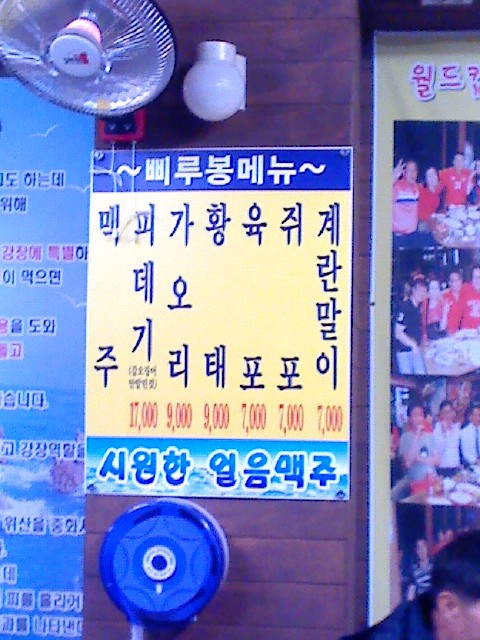 ~삐루봉메뉴~
맥주
피데기
(갑오징어
반말린것)
17,000
가오리
9,000
황태
9,000
육포
7,000
쥐포
7,000
계란말이
7,000
시원한 얼음맥주
월드컵
도 하는데
위해
강장에 특별하
이 먹으면
을 도와
습니다.
고 강장역할을
위산을 중화시
데
피를 올리거
과를 나타낸다